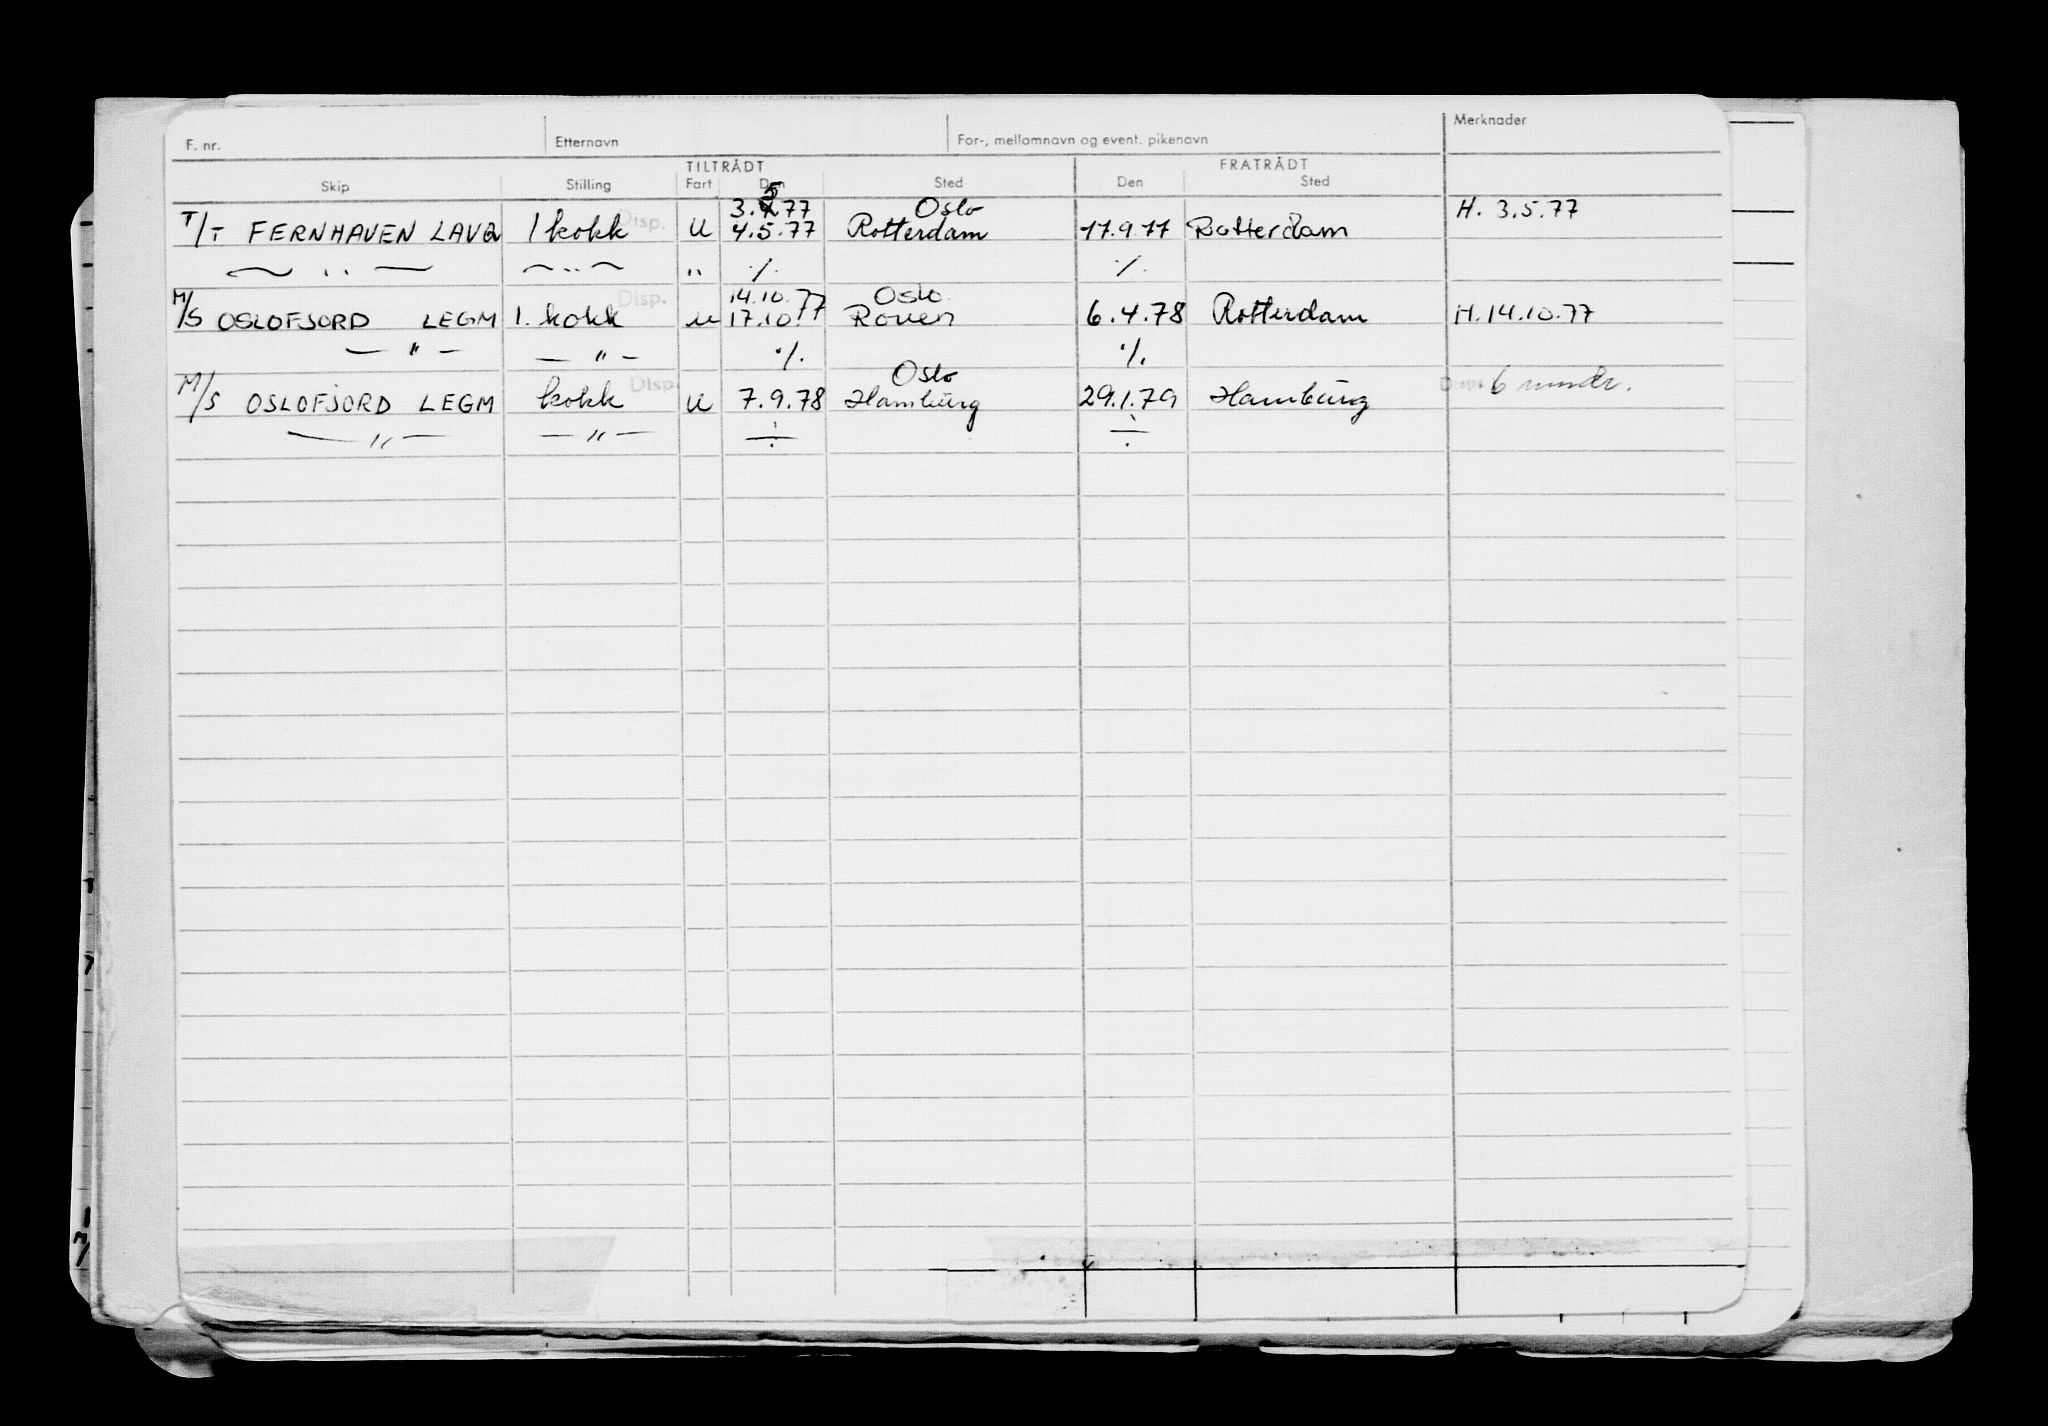 F. nr. Etternavn For-, mellomnavn og event. pikenavn Merknader
TILTRÅDT FRATRÅDT
Skip Stilling Fart Den Sted Den Sted
3.5.77 Oslo H. 3.5.77
T/T FERNHAVEN LAVQ 1 kokk Disp. u 4.5.77 Rotterdam 17.9.77 Rotterdam
— " — — " — " ./. ./.
14.10.77 Oslo
M/S OSLOFJORD LEGM 1. kokk Disp. u 17.10.77 Rouen 6.4.78 Rotterdam H. 14.10.77
— " — — " — ./. ./.
Oslo
M/S OSLOFJORD LEGM kokk Disp. u 7.9.78 Hamburg 29.1.79 Hamburg Disp. 6 mndr.
— " — — " — ÷ ÷